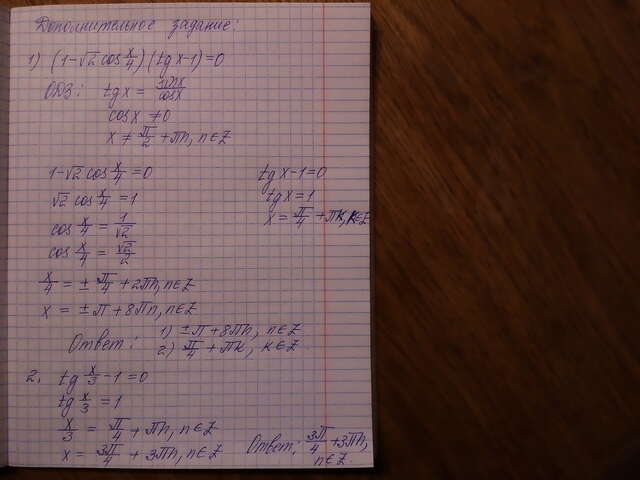 Дополнительное задание:
1) (1-√2 cos x/4)(tg x-1)=0
ОДЗ: tg x = sin x/cos x
cos x ≠ 0
x ≠ π/2 + πn, n∈Z
1-√2 cos x/4 = 0
√2 cos x/4 = 1
cos x/4 = 1/√2
cos x/4 = √2/2
x/4 = ± π/4 + 2πn, n∈Z
x = ± π + 8πn, n∈Z
tg x-1=0
tg x = 1
x = π/4 + πk, k∈Z
Ответ: 1) ±π + 8πn, n∈Z
2) π/4 + πk, k∈Z.
2. tg x/3 - 1 = 0
tg x/3 = 1
x/3 = π/4 + πn, n∈Z
x = 3π/4 + 3πn, n∈Z
Ответ: 3π/4 + 3πn,
n∈Z.